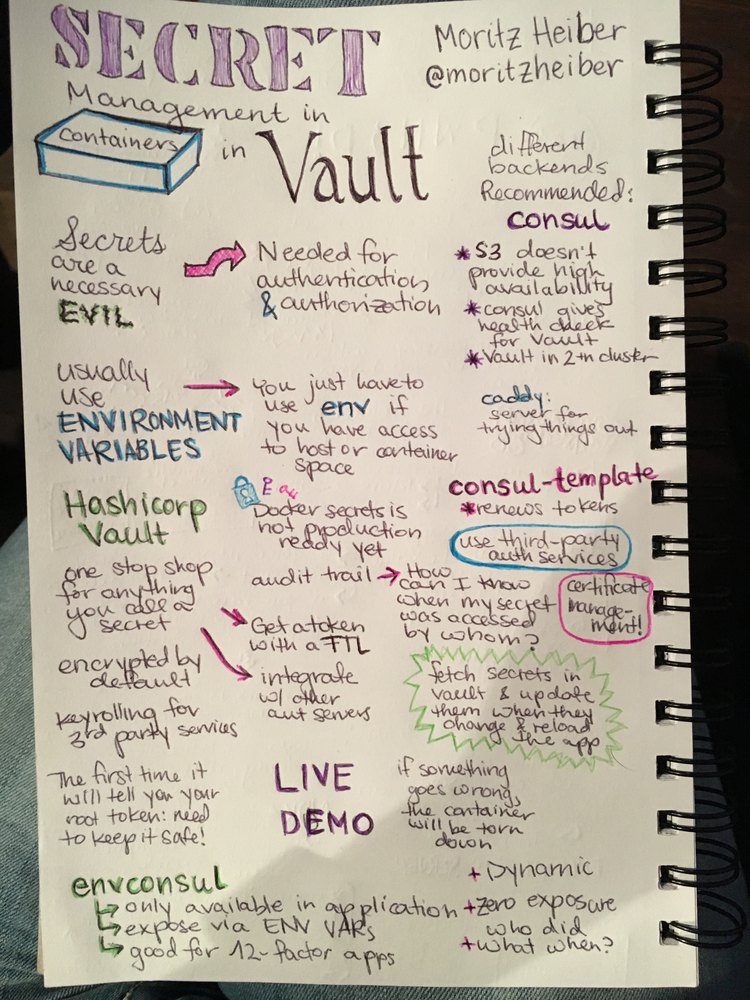 SECRET
Management in
containers in Vault
Moritz Heiber
@moritzheiber
different
backends
Recommended:
consul
* S3 doesn't
provide high
availability
* consul gives
health check
for Vault
* Vault in 2+n cluster
Secrets
are a
necessary
EVIL
Needed for
authentication
& authorization
usually
use
ENVIRONMENT
VARIABLES
You just have to
use env if
you have access
to host or container
space
caddy:
server for
trying things out
Hashicorp
Vault
Docker secrets is
not production
ready yet
consul-template
* renews tokens
use third-party
auth services
one stop shop
for anything
you call a
secret
audit trail
How
can I know
when my secret
was accessed
by whom?
certificate
manage-
ment!
Get a token
with a TTL
integrate
w/ other
aut servers
encrypted by
default
keyrolling for
3rd party services
fetch secrets in
vault & update
them when they
change & reload
the app
The first time it
will tell you your
root token: need
to keep it safe!
LIVE
DEMO
if something
goes wrong,
the container
will be torn
down
envconsul
only available in application
expose via ENV VARs
good for 12-factor apps
+ Dynamic
+ Zero exposure
who did
+ what when?